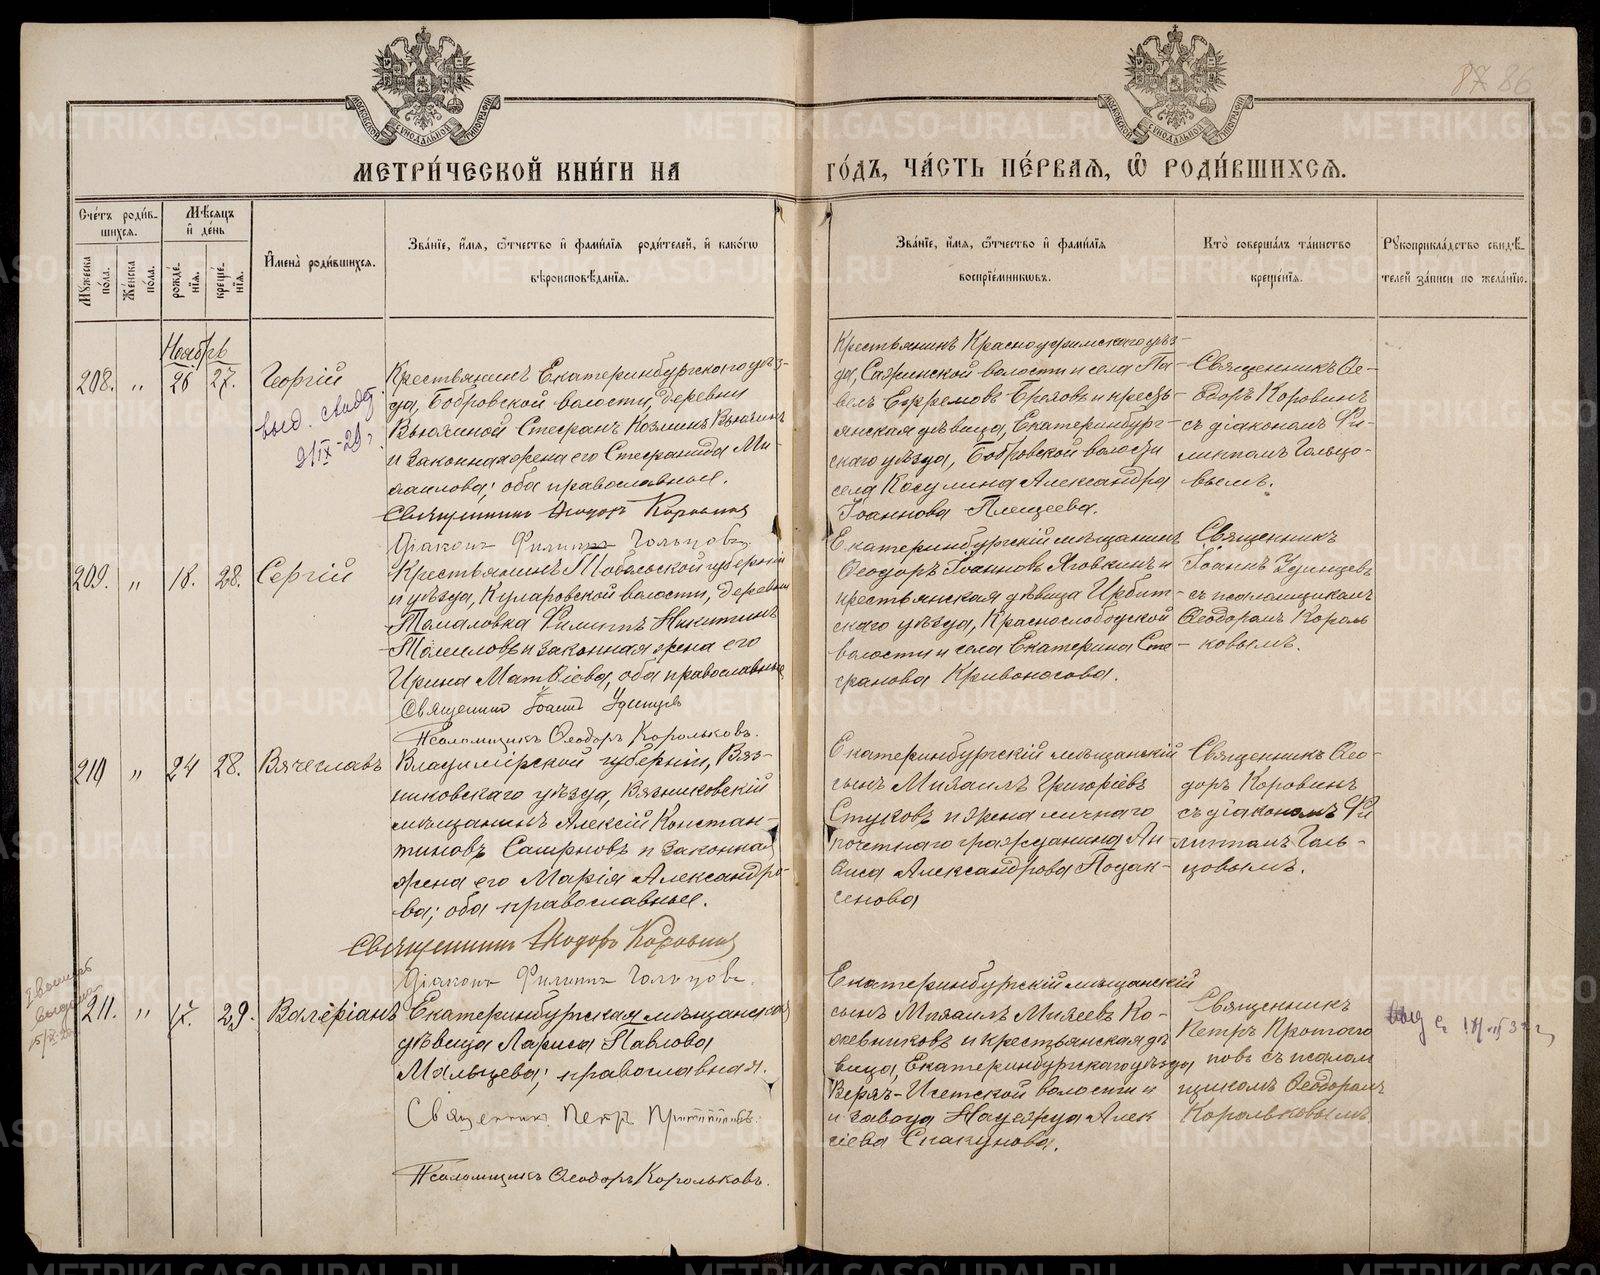 87 86
МОСКОВСКОЙ СѴНОДАЛЬНОЙ ТИПОГРАФІИ
МОСКОВСКОЙ СѴНОДАЛЬНОЙ ТИПОГРАФІИ
МЕТРИ́ЧЕСКОЙ КНИ́ГИ НА
ГО́ДЪ, ЧА́СТЬ ПЕ́РВАѦ, Ѿ РОДИ́ВШИХСѦ.
Сче́тъ роди́в-
шихсѧ.
Мѣ́сѧцъ
и҆ де́нь
Мꙋ́жеска
по́ла.
Же́нска
по́ла.
рожде́-
нїѧ.
креще́-
нїѧ.
И҆мена̀ роди́вшихсѧ.
Зва́нїе, и҆́мѧ, ѻ҆́тчество и҆ фами́лїѧ роди́телей, и҆ како́гѡ
вѣроисповѣ́данїѧ.
Зва́нїе, и҆́мѧ, ѻ҆́тчество и҆ фами́лїѧ
воспрїе́мникѡвъ.
Кто̀ соверша́лъ та́инство
креще́нїѧ.
Рꙋкоприкла́дство свидѣ́-
телей за́писи по жела́нїю.
Ноябрь
208. „ 26 27.
Георгій
выд. свид.
21/IX-29 г.
Крестьянинъ Екатеринбургскаго уѣз-
да, Бобровской волости, деревни
Вьюхиной Стефанъ Козминъ Вьюхинъ
и законная жена его Стефанида Ми-
хаилова; оба православные.
Священникъ Ѳеодоръ Коровинъ
Діаконъ Филиппъ Гольцовъ.
Крестьянинъ Красноуфимскаго уѣз-
да, Сажинской волости и села Па-
велъ Ефремовъ и кресть-
янская дѣвица, Екатеринбург-
скаго уѣзда, Бобровской волости
села Косулина Александра
Іоаннова Плещеева.
Священникъ Ѳе-
одоръ Коровинъ
съ діакономъ Фи-
липпомъ Гольцо-
вымъ.
209. „ 18. 28.
Сергій
Крестьянинъ Тобольской губерніи
и уѣзда, Куларовской волости, деревни
Филиппъ Никитинъ
и законная жена его
Ирина Матвіева, оба православные
Священникъ Іоаннъ Удинцевъ
Псаломщикъ Ѳеодоръ Корольковъ.
Екатеринбургскій мѣщанинъ
Ѳеодоръ Іоанновъ Яговкинъ и
крестьянская дѣвица Ирбит-
скаго уѣзда, Краснослободской
волости и села Екатерина Сте-
фанова Кривоносова.
Священникъ
Іоаннъ Удинцевъ
съ псаломщикомъ
Ѳеодоромъ Король
ковымъ.
210 „ 24 28.
Вячеславъ
Владимірской губерніи, Вяз-
никовскаго уѣзда, Вязниковскій
мѣщанинъ Алексій Констан-
тиновъ Смирновъ и законная
жена его Марія Александро-
ва; оба православные.
Священникъ Ѳеодоръ Коровинъ
Діаконъ Филиппъ Гольцовъ.
Екатеринбургскій мѣщанскій
сынъ Михаилъ Григоріевъ
Стуковъ и жена личнаго
почетнаго гражданина Ан-
фиса Александрова Подак-
сенова
Священникъ Ѳео-
доръ Коровинъ
съ діакономъ Фи
липпомъ Голь-
цовымъ.
211. „ 17. 29.
Валеріанъ
Екатеринбургская мѣщанская
дѣвица Лариса Павлова
Мальцева; православная.
Священникъ Петръ Протопоповъ.
Псаломщикъ Ѳеодоръ Корольковъ.
Екатеринбургскій мѣщанскій
сынъ Михаилъ Михеевъ Ко-
жевниковъ и крестьянская дѣ
вица, Екатеринбургскаго уѣзда
Верхъ-Исетской волости и
и завода Надежда Алек
сіева Спакунова.
Священникъ
Петръ Протопо
повъ съ псалом
щикомъ Ѳеодоромъ
Корольковымъ